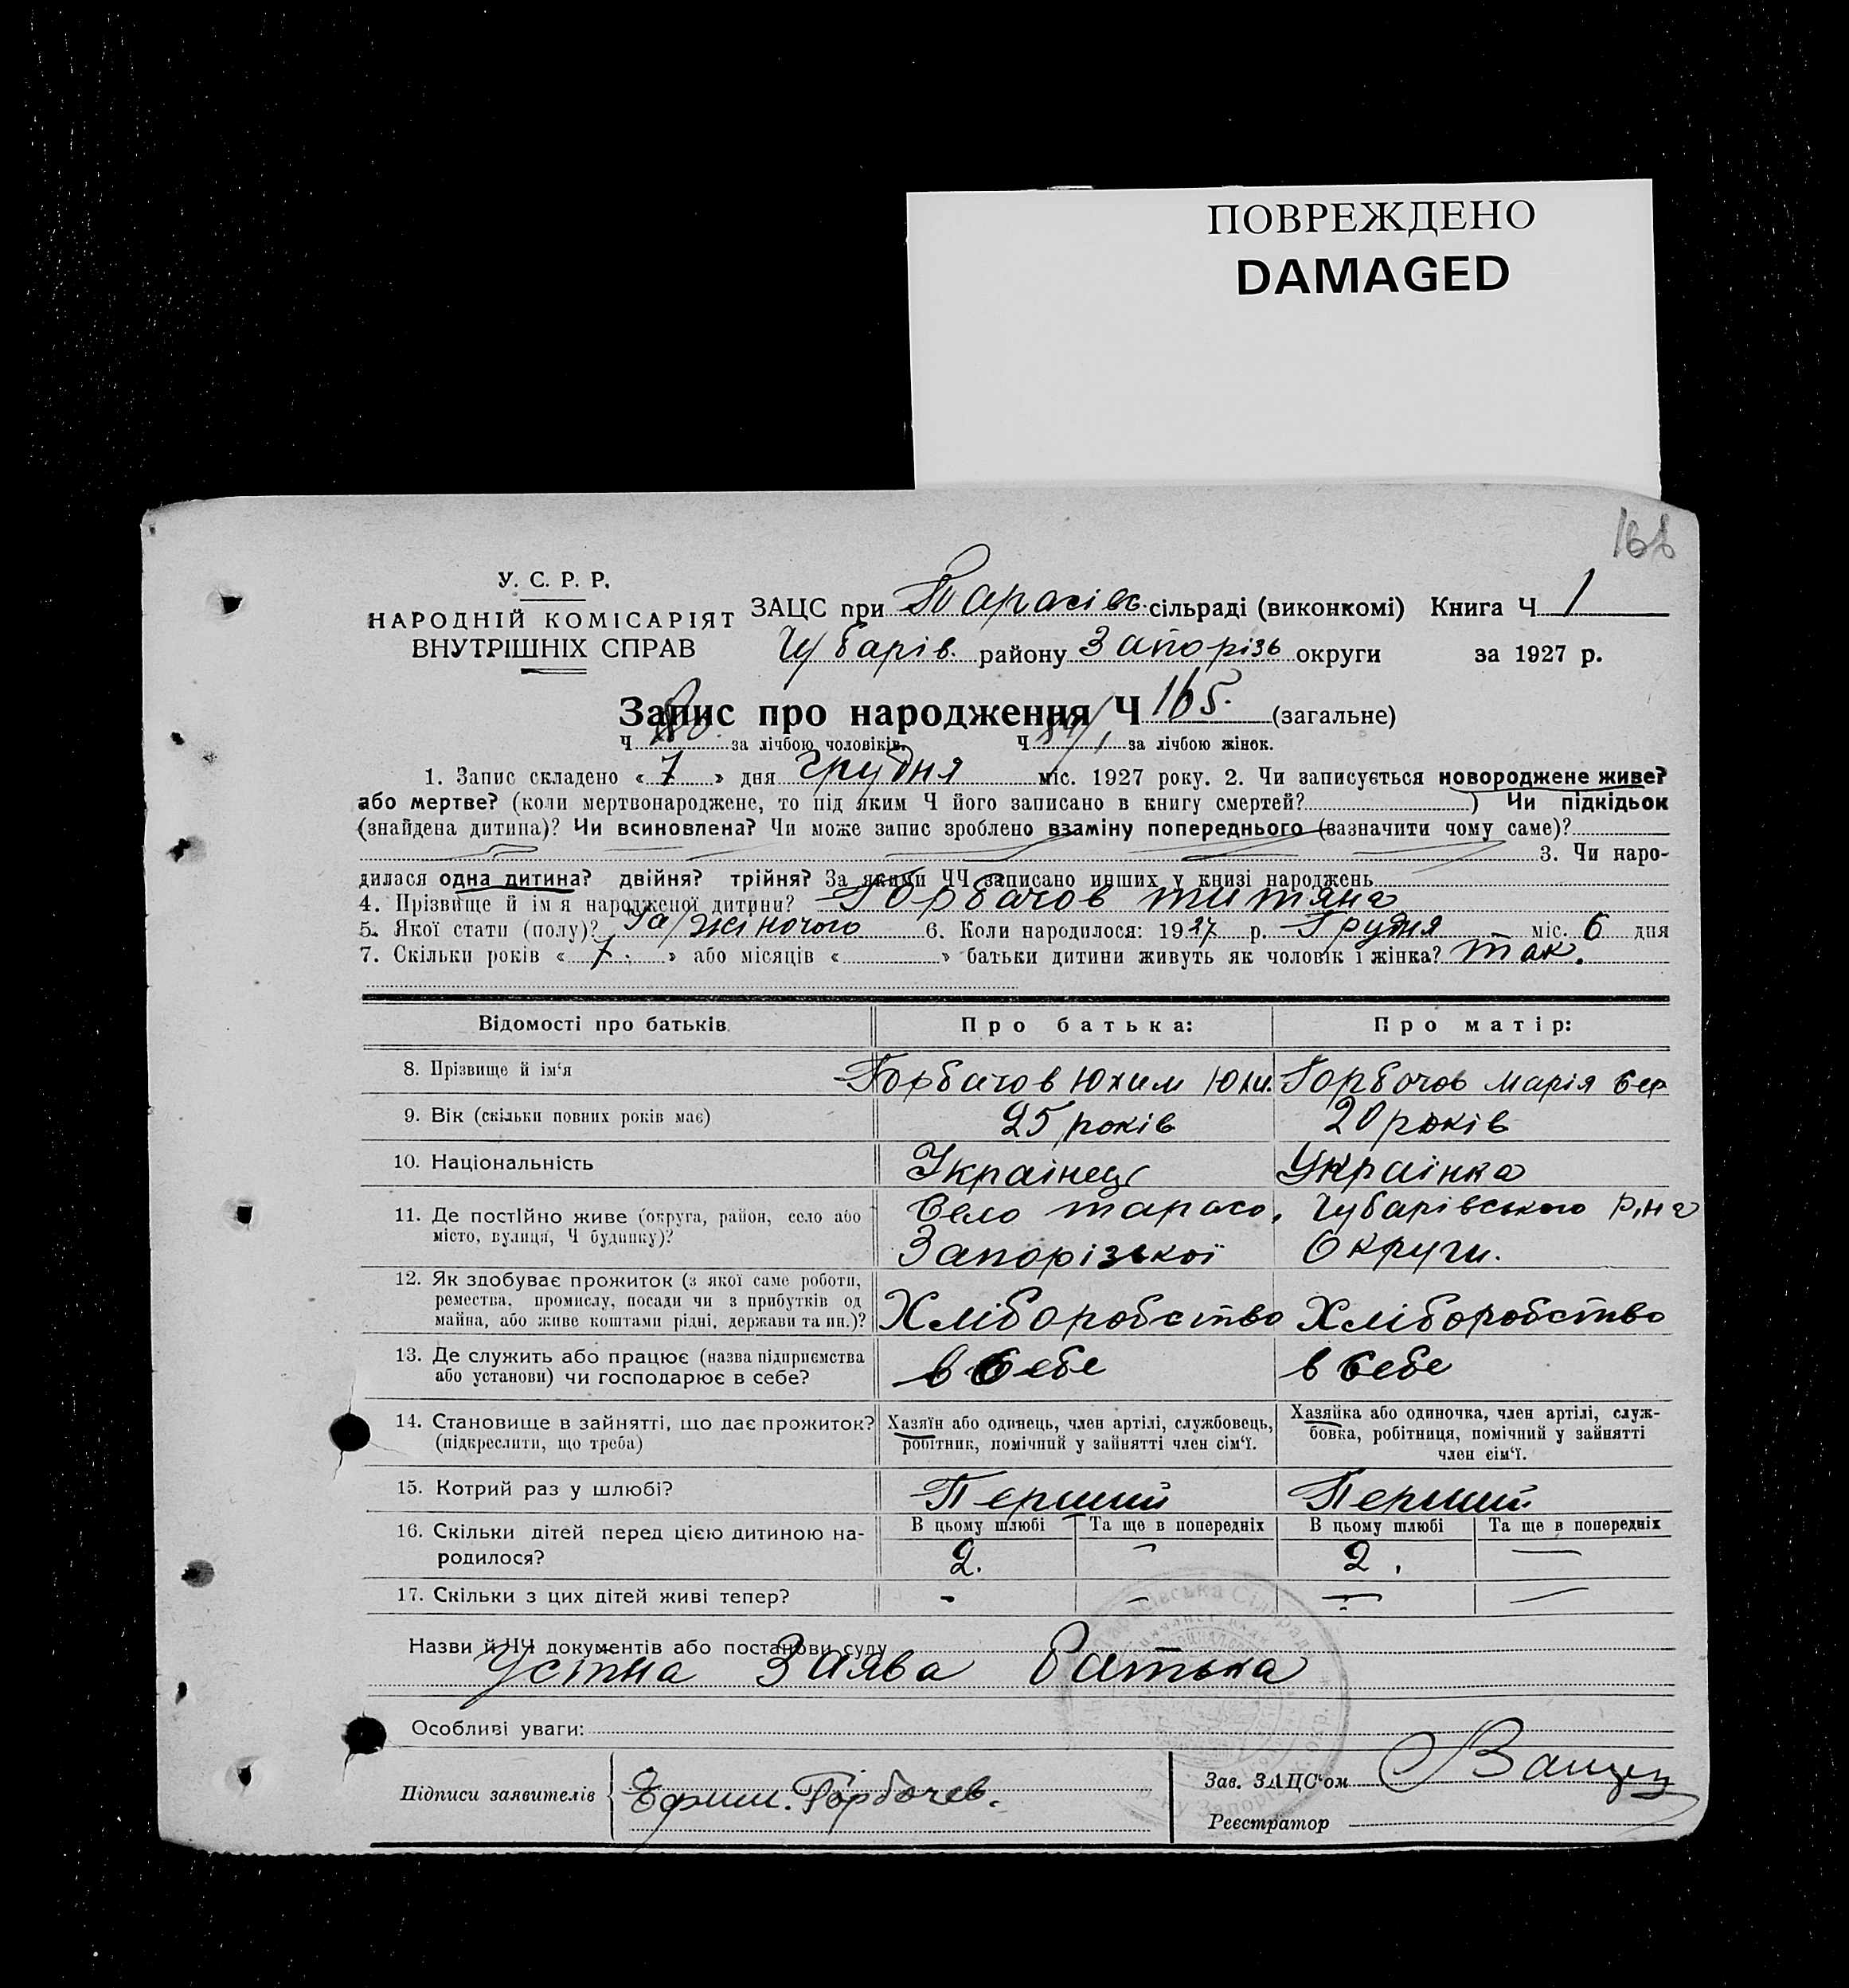 ПОВРЕЖДЕНО
DAMAGED
У. С. Р. Р.
НАРОДНІЙ КОМІСАРІЯТ
ВНУТРІШНІХ СПРАВ
ЗАЦС при Тарасівс. сільраді (виконкомі) Книга Ч 1
Чубарів. району Запорізь округи за 1927 р.
Запис про народження Ч 165. (загальне)
Ч за лічбою чоловіків. Ч за лічбою жінок.
1. Запис складено « 7 » дня Грудня міс. 1927 року. 2. Чи записується новороджене живе?
або мертве? (коли мертвонароджене, то під яким Ч його записано в книгу смертей? ) Чи підкідьок
(знайдена дитина)? Чи всиновлена? Чи може запис зроблено взаміну попереднього (зазначити чому саме)?
3. Чи наро-
дилася одна дитина? двійня? трійня? За якими ЧЧ записано инших у книзі народжень
4. Прізвище й ім я народженої дитини? Горбачов титяна
5. Якої стати (полу)? жіночого 6. Коли народилося: 1927 р. Грудня міс. 6 дня
7. Скільки років « 7. » або місяців « » батьки дитини живуть як чоловік і жінка? так.
Відомості про батьків Про батька: Про матір:
8. Прізвище й ім'я Горбачов Юхим Юхи. Горбочов Марія
9. Вік (скільки повних років має) 25 років 20 років
10. Національність Українець Українка
11. Де постійно живе (округа, район, село або Село тарасо, Чубарівського р,на
місто, вулиця, Ч будинку)? Запорізької Округи.
12. Як здобуває прожиток (з якої саме роботи,
ремества, промислу, посади чи з прибутків од
майна, або живе коштами рідні, держави та ин.)? Хліборобство Хліборобство
13. Де служить або працює (назва підприємства в Себе в Себе
або установи) чи господарює в себе?
14. Становище в зайнятті, що дає прожиток? Хазяїн або одинець, член артілі, службовець, Хазяйка або одиночка, член артілі, служ-
(підкреслити, що треба) робітник, помічний у зайнятті член сім'ї. бовка, робітниця, помічний у зайнятті
член сім'ї.
15. Котрий раз у шлюбі? Перший Перший
16. Скільки дітей перед цією дитиною на- В цьому шлюбі Та ще в попередніх В цьому шлюбі Та ще в попередніх
родилося? 2. — 2. —
17. Скільки з цих дітей живі тепер? - - — —
Назви й ЧЧ документів або постанови суду
Устна Заява Батька
Особливі уваги:
Підписи заявителів Ефим. Горбачев.
Зав. ЗАЦС'ом
Реєстратор